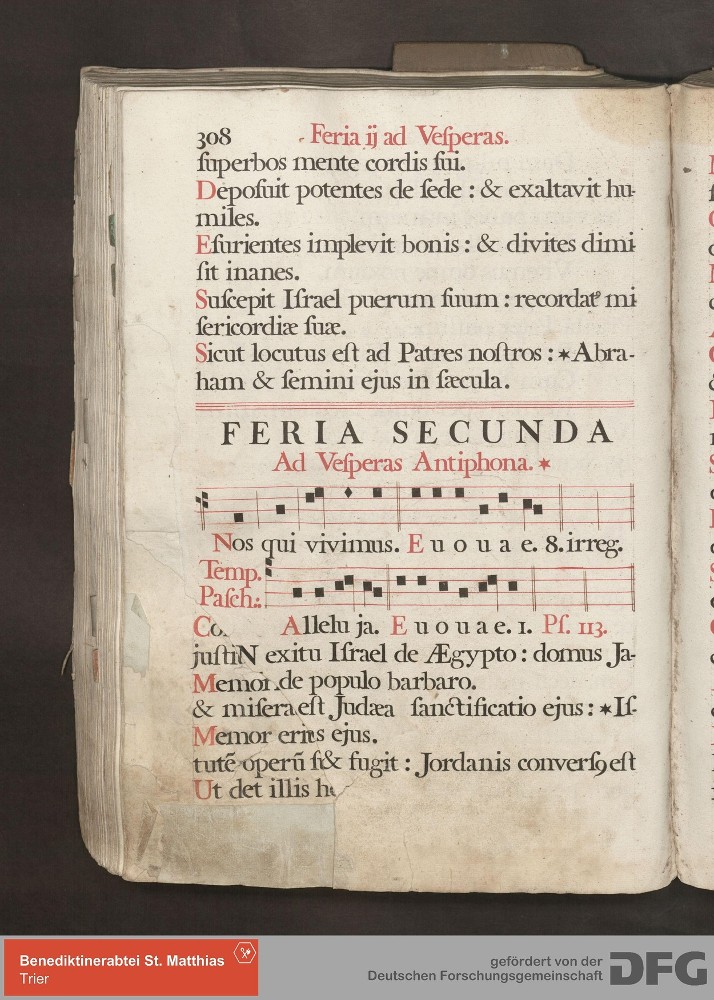 308 Feria ij ad Veſperas.
ſuperbos mente cordis ſui.
Depoſuit potentes de ſede : & exaltavit hu-
miles.
Eſurientes implevit bonis : & divites dimi
ſit inanes.
Suſcepit Iſrael puerum ſuum : recordat⁹ mi
ſericordiæ ſuæ.
Sicut locutus eſt ad Patres noſtros : ✶ Abra-
ham & ſemini ejus in ſæcula.
FERIA SECUNDA
Ad Veſperas Antiphona. ✶
Nos qui vivimus. E u o u a e. 8. irreg.
Temp.
Paſch.:
Co. Allelu ja. E u o u a e. 1. Pſ. 113.
juſtiN exitu Iſrael de Ægypto : domus Ja-
Memor de populo barbaro.
& miſera eſt Judæa ſanctificatio ejus : ✶ Iſ-
Memor erit s ejus.
tutē operū ſi & fugit : Jordanis converſꝯ eſt
Ut det illis h
Benediktinerabtei St. Matthias
Trier
gefördert von der
Deutschen Forschungsgemeinschaft DFG